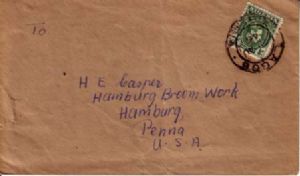 To
H E Casper
Hamburg Broom Work
Hamburg,
Penna
U. S. A